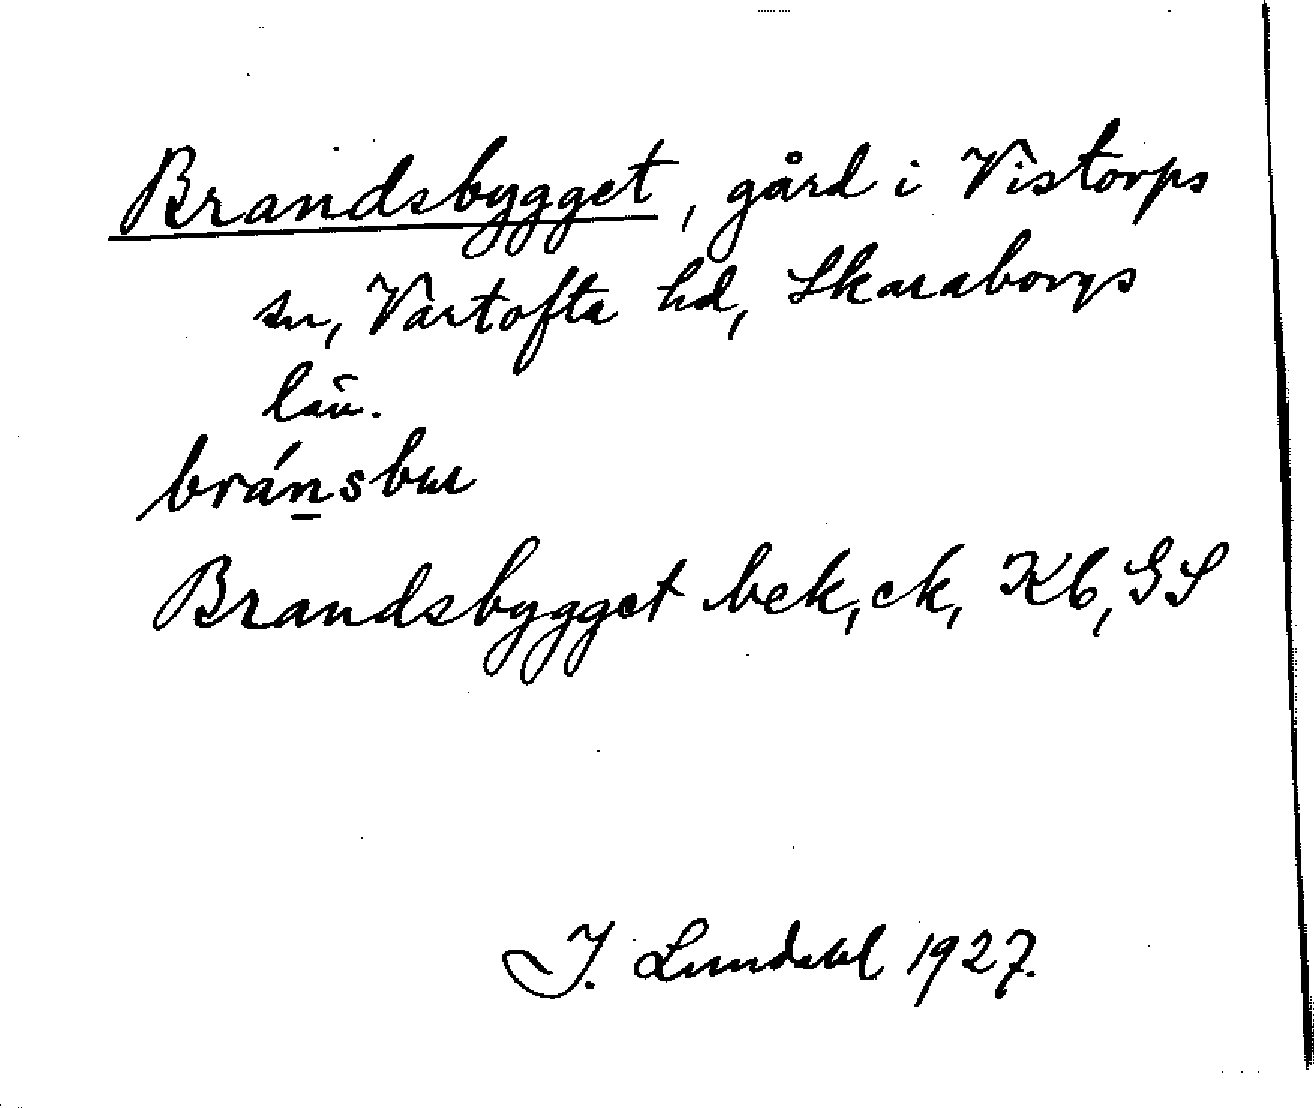 Brandsbygget, gård i Vistorps
sn, Vartofta hd, Skaraborgs
län.
bránsbur
Brandsbygget bek, ek, Kb, GS
I. Lundahl 1927.